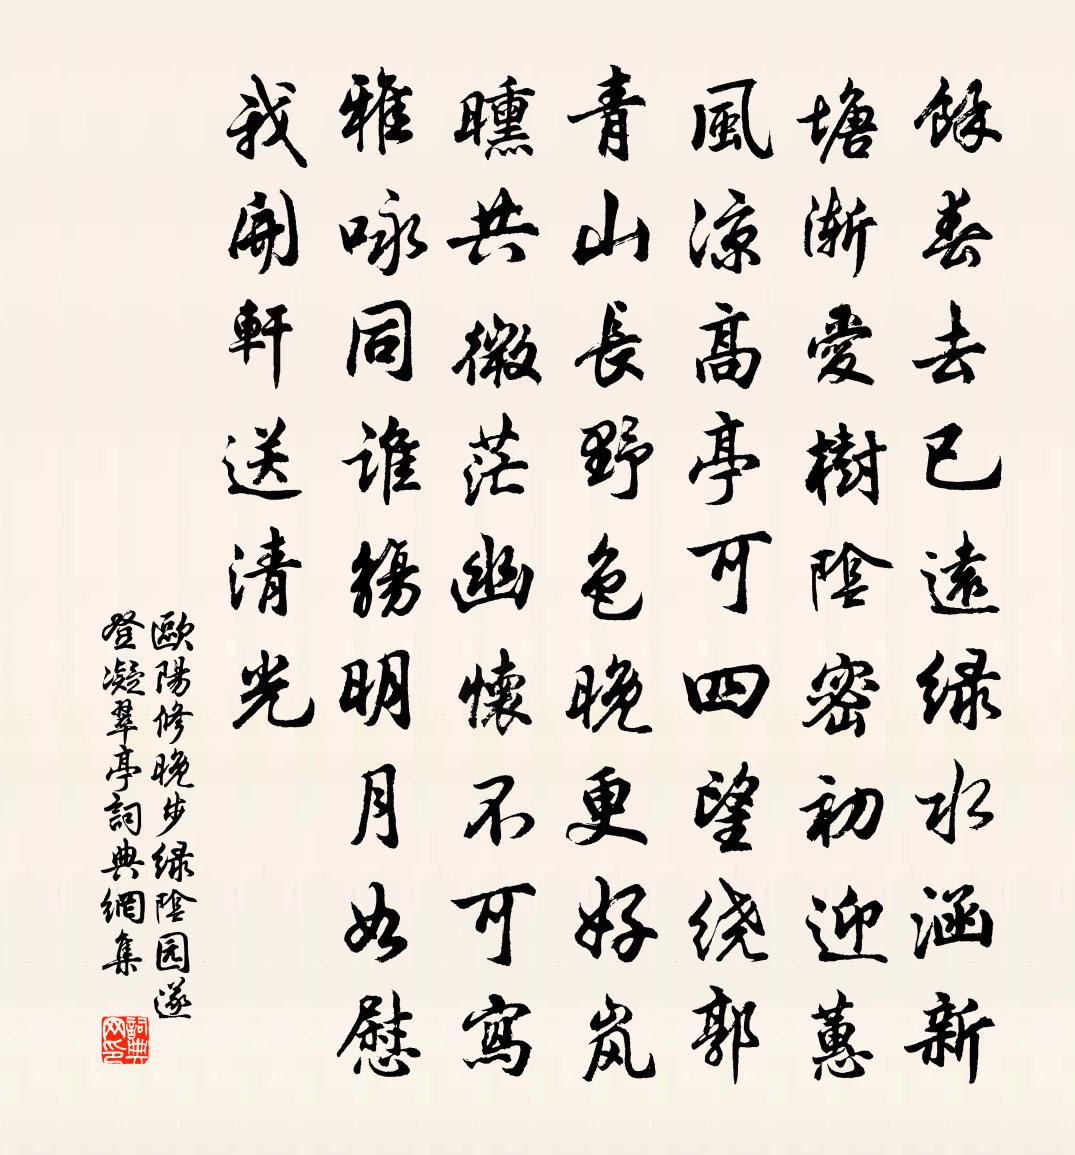 餘春去已遠绿水涵新
塘漸愛樹陰密初迎蕙
風凉高亭可四望绕郭
青山長野色晚更好岚
曛共微茫幽懷不可寫
雅咏同誰觴明月如慰
我開軒送清光
歐陽修晚步绿陰园遂
登凝翠亭詞典網集
詞典网印